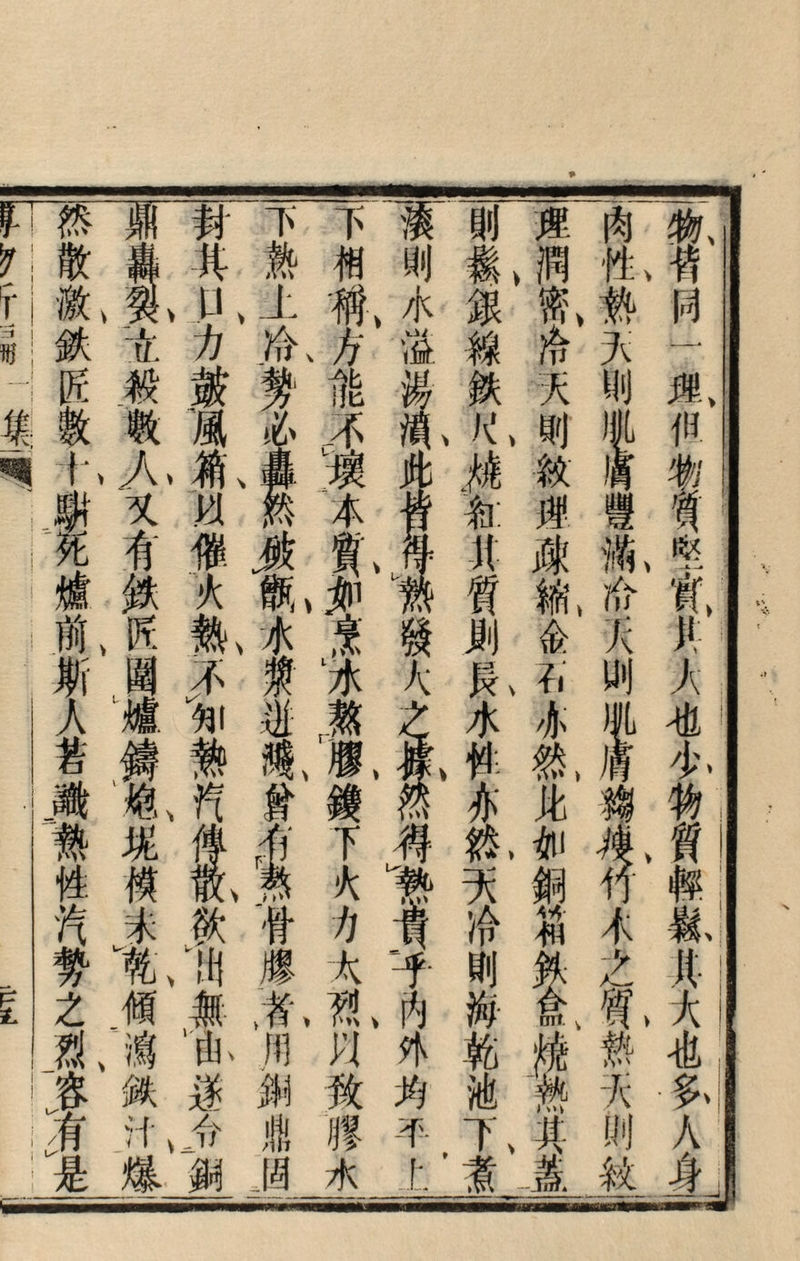 物、皆同一理、但物質堅實、其大也少、物質輕鬆、其大也多、人身
肉性、熱天則肌膚豐滿、冷天則肌膚縐瘦、竹木之質、熱天則紋
理潤密、冷天則紋理疎縮、金石亦然、比如銅箱鉄盒、燒熱其蓋
則鬆、銀線鉄尺、燒紅其質則長、水性亦然、天冷則海乾池下、煮
滚則水溢湯濆、此皆得熱發大之據、然得熱貴乎内外均平、上
下相稱、方能不壞本質、如烹水熬膠、鑊下火力太烈、以致膠水
下熱上冷、勢必轟然破甑、水漿迸濺、曾有熬骨膠者、用銅鼎固
封其口、力鼓風箱、以催火熱、不知熱汽傳散、欲出無由、遂令銅
鼎轟裂、立殺數人、又有鉄匠圍爐鑄炮、坭模未乾、傾瀉鉄汁、爆
然散激、鉄匠數十、駢死爐前、斯人若識熱性汽勢之烈、容有是
博物新編 一集